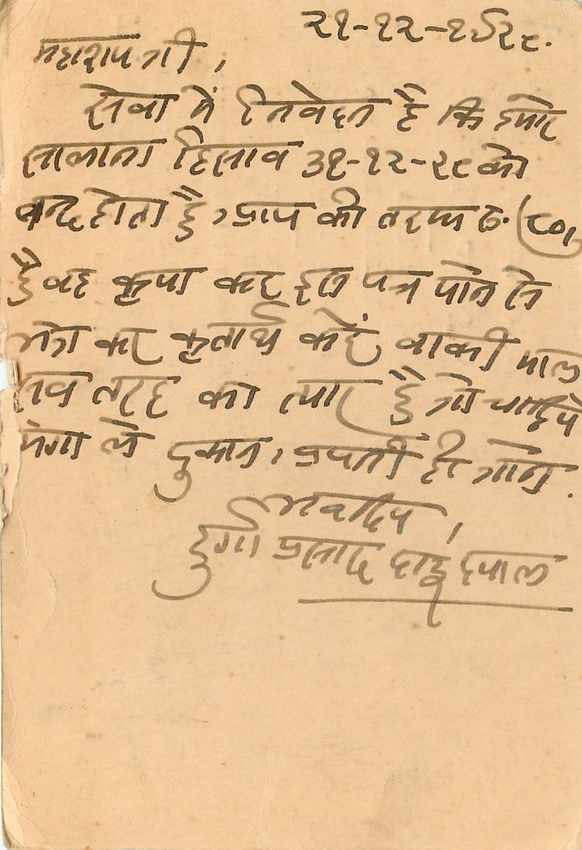 २१-१२-१९२८.
महाशय जी,
सेवा में निवेदन है कि हमारे
सालाना हिसाब ३१-१२-२८ को
बन्द होता है, आप की तरफ रु.
है वह कृपा कर इस पत्र पाते ही
भेज कर कृतार्थ करें बाकी माल
सब तरह का त्यार है जो चाहिये
मंगा लें दुकान अपनी ही जाने.
भवदीय,
दुर्गा प्रसाद दयाल